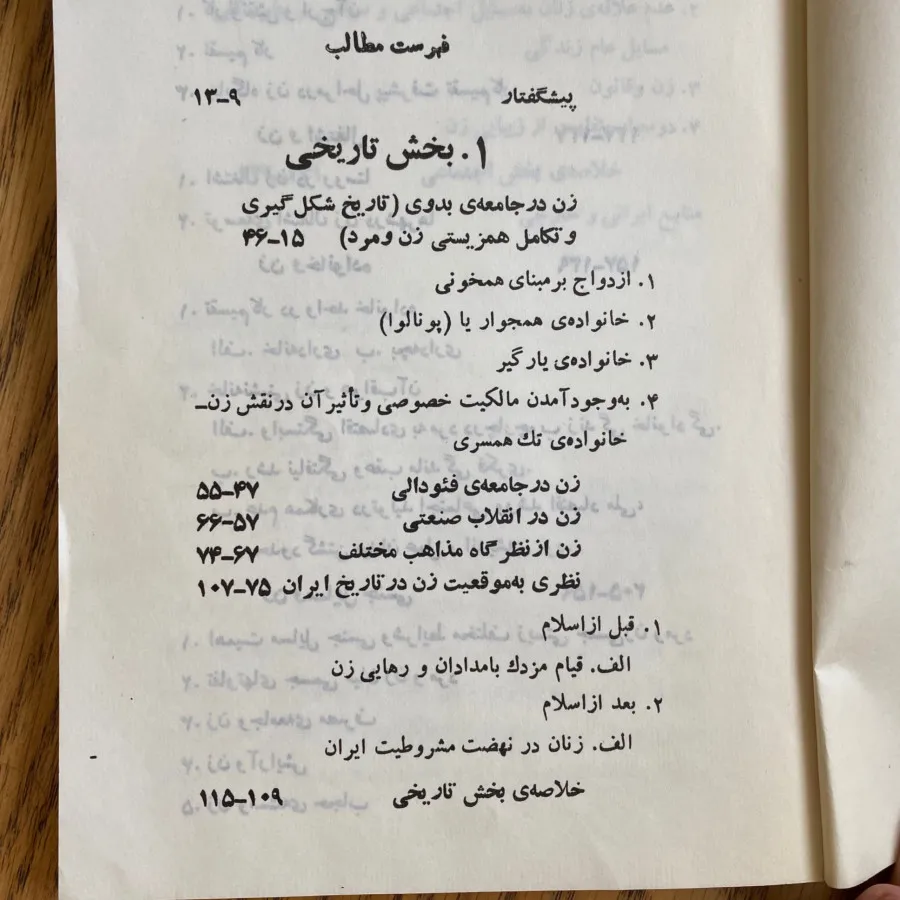 فهرست مطالب
پیشگفتار ۹–۱۳
۱. بخش تاریخی
زن در جامعه‌ی بدوی (تاریخ شکل گیری
و تکامل همزیستی زن و مرد) ۱۵–۴۶
۱. ازدواج بر مبنای همخونی
۲. خانواده‌ی همجوار یا (پونالوا)
۳. خانواده‌ی یارگیر
۴. به‌وجود آمدن مالکیت خصوصی و تأثیر آن در نقش زن–
خانواده‌ی تك همسری
زن در جامعه‌ی فئودالی ۴۷–۵۵
زن در انقلاب صنعتی ۵۷–۶۶
زن از نظرگاه مذاهب مختلف ۶۷–۷۴
نظری به‌موقعیت زن در تاریخ ایران ۷۵–۱۰۷
۱. قبل از اسلام
الف. قیام مزدك بامدادان و رهایی زن
۲. بعد از اسلام
الف. زنان در نهضت مشروطیت ایران
خلاصه‌ی بخش تاریخی ۱۰۹–۱۱۵